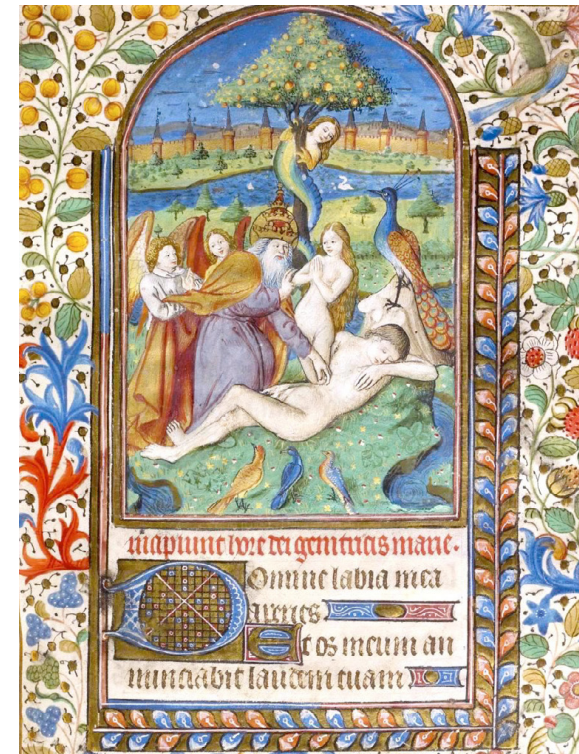 incipiunt hore dei genitricis marie.
Domine labia mea
aperies
Et os meum an
nunciabit laudem tuam